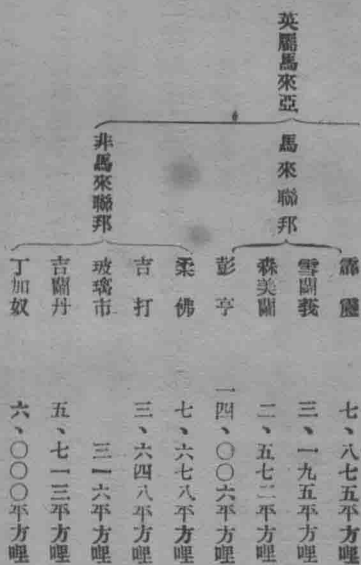 英屬馬來亞
馬來聯邦
霹靂 七、八七五平方哩
雪蘭莪 三、一九五平方哩
森美蘭 二、五七二平方哩
彭亨 一四、〇〇六平方哩
非馬來聯邦
柔佛 七、六七八平方哩
吉打 三、六四八平方哩
玻璃市 三一六平方哩
吉蘭丹 五、七一三平方哩
丁加奴 六、〇〇〇平方哩